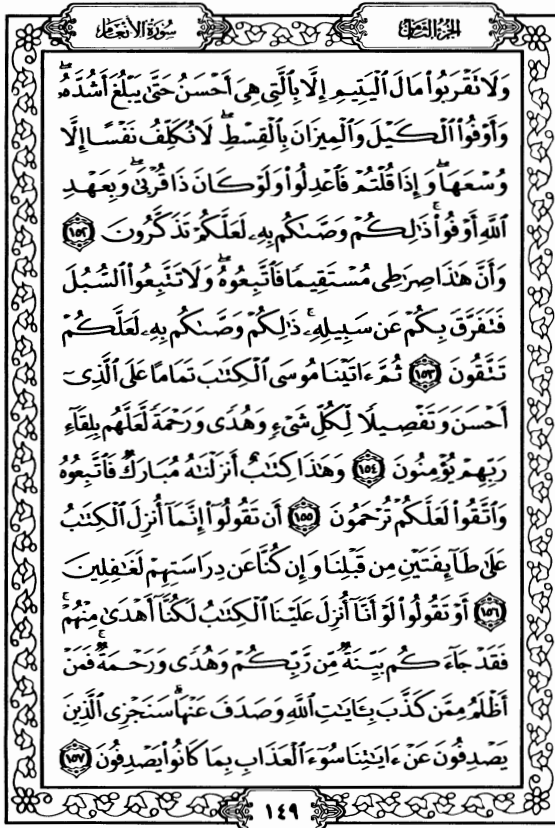 سُورَةُ الأَنْعَام
الجُزْءُ الثَّامِن
وَلَا تَقْرَبُوا۟ مَالَ ٱلْيَتِيمِ إِلَّا بِٱلَّتِى هِىَ أَحْسَنُ حَتَّىٰ يَبْلُغَ أَشُدَّهُۥۖ
وَأَوْفُوا۟ ٱلْكَيْلَ وَٱلْمِيزَانَ بِٱلْقِسْطِۖ لَا نُكَلِّفُ نَفْسًا إِلَّا
وُسْعَهَاۖ وَإِذَا قُلْتُمْ فَٱعْدِلُوا۟ وَلَوْ كَانَ ذَا قُرْبَىٰۖ وَبِعَهْدِ
ٱللَّهِ أَوْفُوا۟ۚ ذَٰلِكُمْ وَصَّىٰكُم بِهِۦ لَعَلَّكُمْ تَذَكَّرُونَ ١٥٢
وَأَنَّ هَٰذَا صِرَٰطِى مُسْتَقِيمًا فَٱتَّبِعُوهُۖ وَلَا تَتَّبِعُوا۟ ٱلسُّبُلَ
فَتَفَرَّقَ بِكُمْ عَن سَبِيلِهِۦۚ ذَٰلِكُمْ وَصَّىٰكُم بِهِۦ لَعَلَّكُمْ
تَتَّقُونَ ١٥٣ ثُمَّ ءَاتَيْنَا مُوسَى ٱلْكِتَٰبَ تَمَامًا عَلَى ٱلَّذِىٓ
أَحْسَنَ وَتَفْصِيلًا لِّكُلِّ شَىْءٍ وَهُدًى وَرَحْمَةً لَّعَلَّهُم بِلِقَآءِ
رَبِّهِمْ يُؤْمِنُونَ ١٥٤ وَهَٰذَا كِتَٰبٌ أَنزَلْنَٰهُ مُبَارَكٌ فَٱتَّبِعُوهُ
وَٱتَّقُوا۟ لَعَلَّكُمْ تُرْحَمُونَ ١٥٥ أَن تَقُولُوٓا۟ إِنَّمَآ أُنزِلَ ٱلْكِتَٰبُ
عَلَىٰ طَآئِفَتَيْنِ مِن قَبْلِنَا وَإِن كُنَّا عَن دِرَاسَتِهِمْ لَغَٰفِلِينَ
١٥٦ أَوْ تَقُولُوا۟ لَوْ أَنَّآ أُنزِلَ عَلَيْنَا ٱلْكِتَٰبُ لَكُنَّآ أَهْدَىٰ مِنْهُمْۚ
فَقَدْ جَآءَكُم بَيِّنَةٌ مِّن رَّبِّكُمْ وَهُدًى وَرَحْمَةٌۚ فَمَنْ
أَظْلَمُ مِمَّن كَذَّبَ بِـَٔايَٰتِ ٱللَّهِ وَصَدَفَ عَنْهَاۗ سَنَجْزِى ٱلَّذِينَ
يَصْدِفُونَ عَنْ ءَايَٰتِنَا سُوٓءَ ٱلْعَذَابِ بِمَا كَانُوا۟ يَصْدِفُونَ ١٥٧
١٤٩